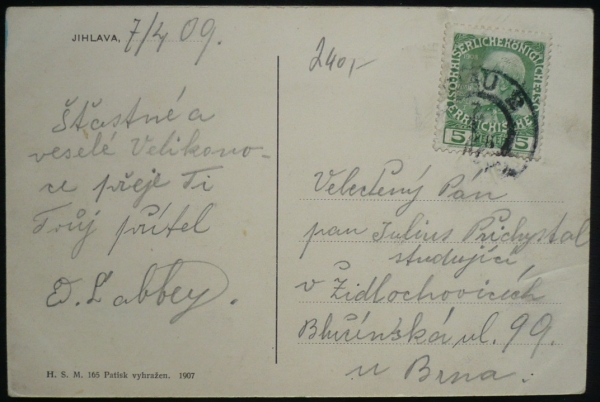 JIHLAVA, 7/4 09.
240,-
Šťastné a
veselé Velikono-
ce přeje Ti
Tvůj přítel
Velectěný Pán
pan Julius Přichystal
studující
v Židlochovicích
ul. 99.
u Brna.
KAISERLICHE KÖNIGLICHE
ÖSTERREICHISCHE
5 5
H. S. M. 165 Patisk vyhražen. 1907